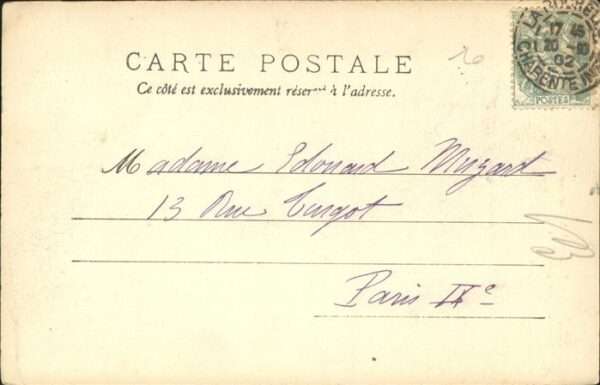 CARTE POSTALE
Ce côté est exclusivement réservé à l'adresse.
LA ROCHELLE
17 45
21 20 -10
02
CHARENTE INF
POSTES
Madame Edouard Muzard
13 Rue Turgot
Paris IXe